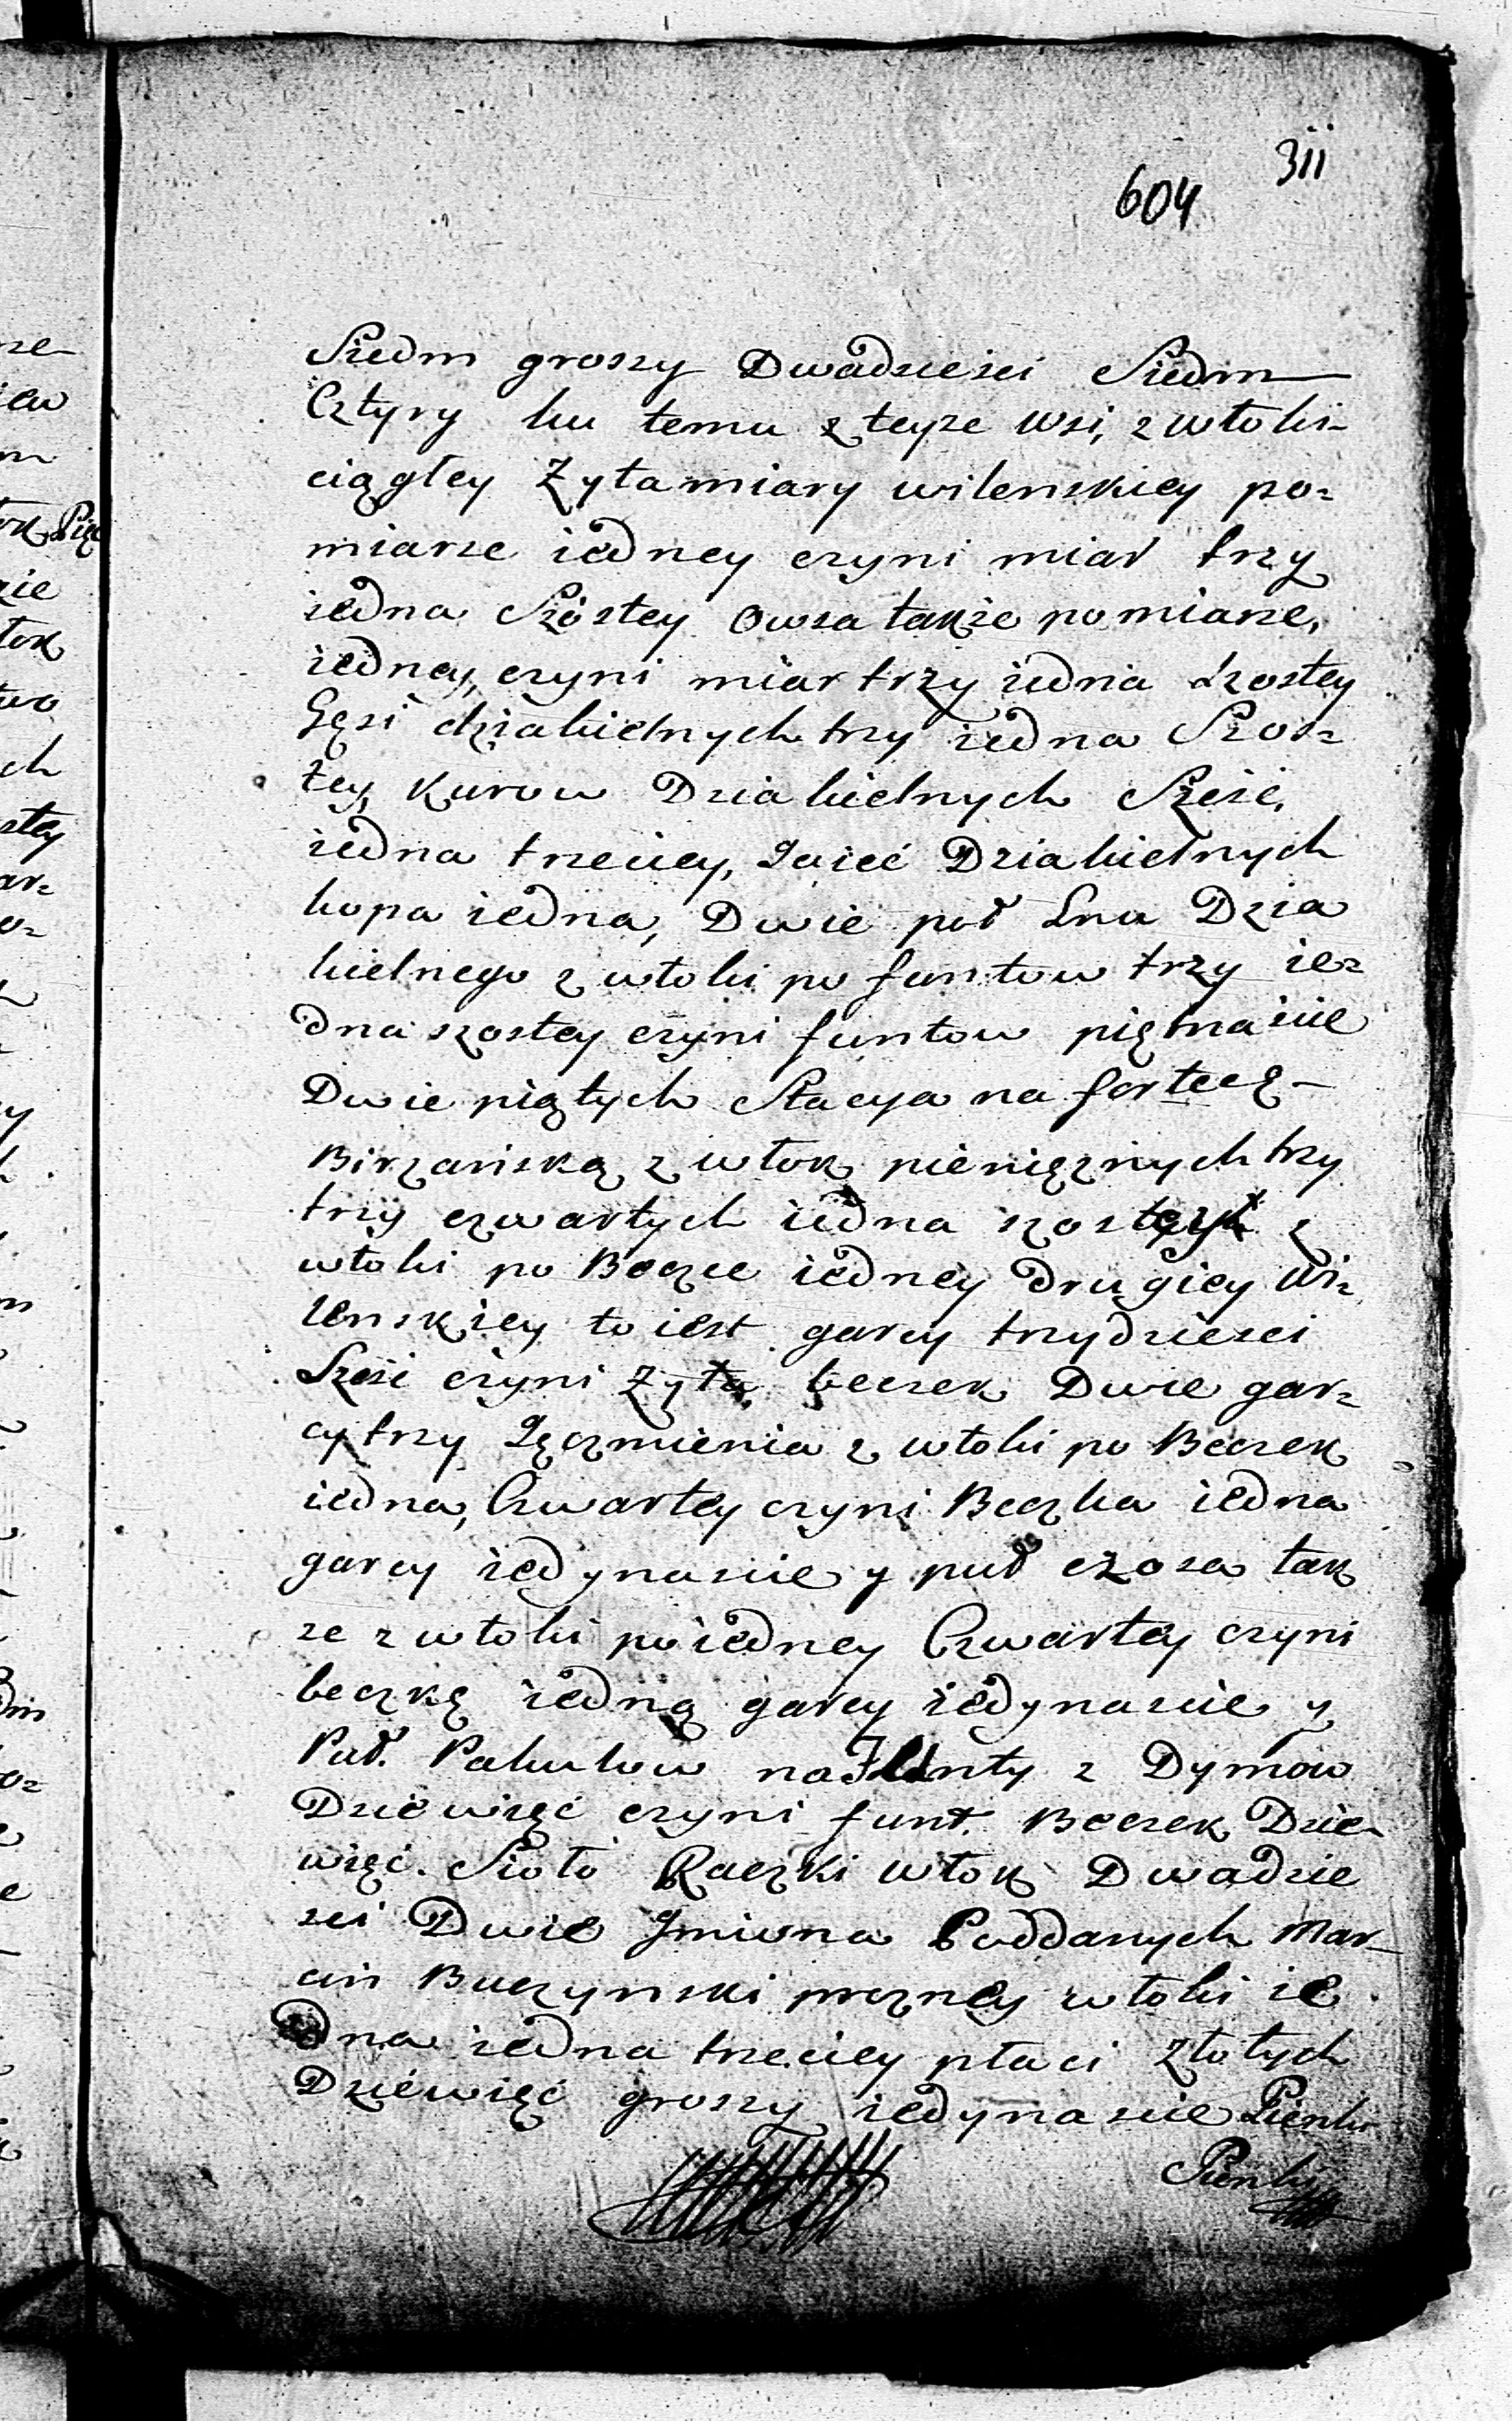 311
604
Siedm groszy Dwadziesci Siedm
Cztyry ku temu z teyze wsi, z włoki
ciągłey Zyta miary wilenskiey po=
miarze iedney czyni miar trzy
iedna Szóstey Owsa takze po miarze,
iedney, czyni miar trzy iedna szostey
Gęsi dziakielnych trzy iedna Szos=
tey, Kurow Dziakielnych Szesc,
iedna trzeciey, Jaiec Dziakielnych
kopa iedna, Dwie poł Lnu Dzia
kielnego z włoki po funtow trzy ie=
dna szostey czyni funtow piętnascie
Dwie piątych Stacya na fortecę
Birzańską z włok pienięznych trzy
trzy czwartych iedna szostey z
włoki po Beczce iedney drugiey Wi=
lenskiey to iest garcy trzydziesci
Szesc czyni Zyta beczek Dwie gar=
cy trzy Jęczmienia z włoki po Beczek
iedna, Czwartey czyni Beczka iedna
garcy iedynascie y puł owsa tak
ze z włoki po iedney Czwartey czyni
beczkę iedną garcy iedynascie y
Puł. Pakułow na Flinty z Dymow
Dziewięć czyni funt. Beczek Dzie=
więć. Sioło Raczki włok Dwadzie
sci Dwie Jmiona Poddanych Mar=
cin Buczynski prozney włoki ie
dna iedna trzeciey płaci Złotych
Dziewięć groszy iedynascie Pienk
Pienki